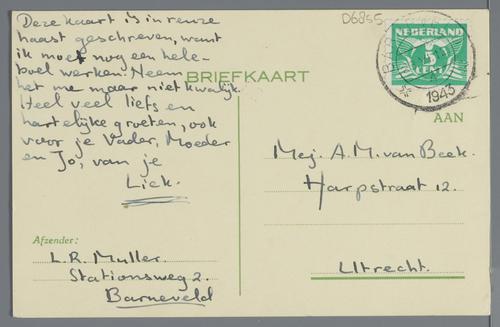 Deze kaart is in reuze
haast geschreven, want
ik moet nog een hele-
boel werken. Neem
het me maar niet kwalijk.
Heel veel liefs en
hartelijke groeten, ook
voor je Vader, Moeder
en Jo, van je
Liek.
Afzender:
L.R. Muller.
Stationsweg 2.
Barneveld
D6855
BRIEFKAART
NEDERLAND
5
CENT
1943
AAN
Mej. A.M. van Beek.
Harpstraat 12.
Utrecht.